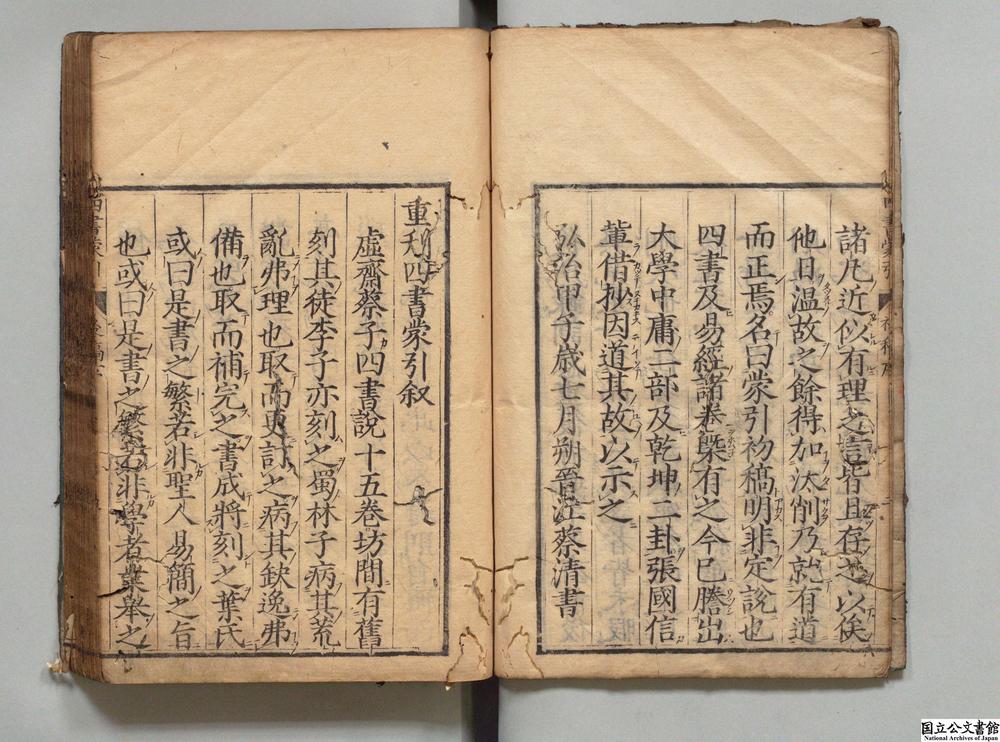 諸凡近似有理之言皆且存之以俟
他日温故之餘得加汰削乃就有道
而正焉名曰蒙引初稿明非定說也
四書及易經諸卷槩有之今已謄出
大學中庸二部及乾坤二卦張國信
輩借抄因道其故以示之
弘治甲子歲七月朔晉江蔡清書
重刊四書蒙引叙
虛齋蔡子四書說十五巻坊間有舊
刻其徒李子亦刻之蜀林子病其荒
亂弗理也取而更訂之病其缺逸弗
備也取而補完之書成將刻之葉氏
或曰是書之繁若非聖人易簡之旨
也或曰是書之繁若非學者業舉之
国立公文書館
National Archives of Japan